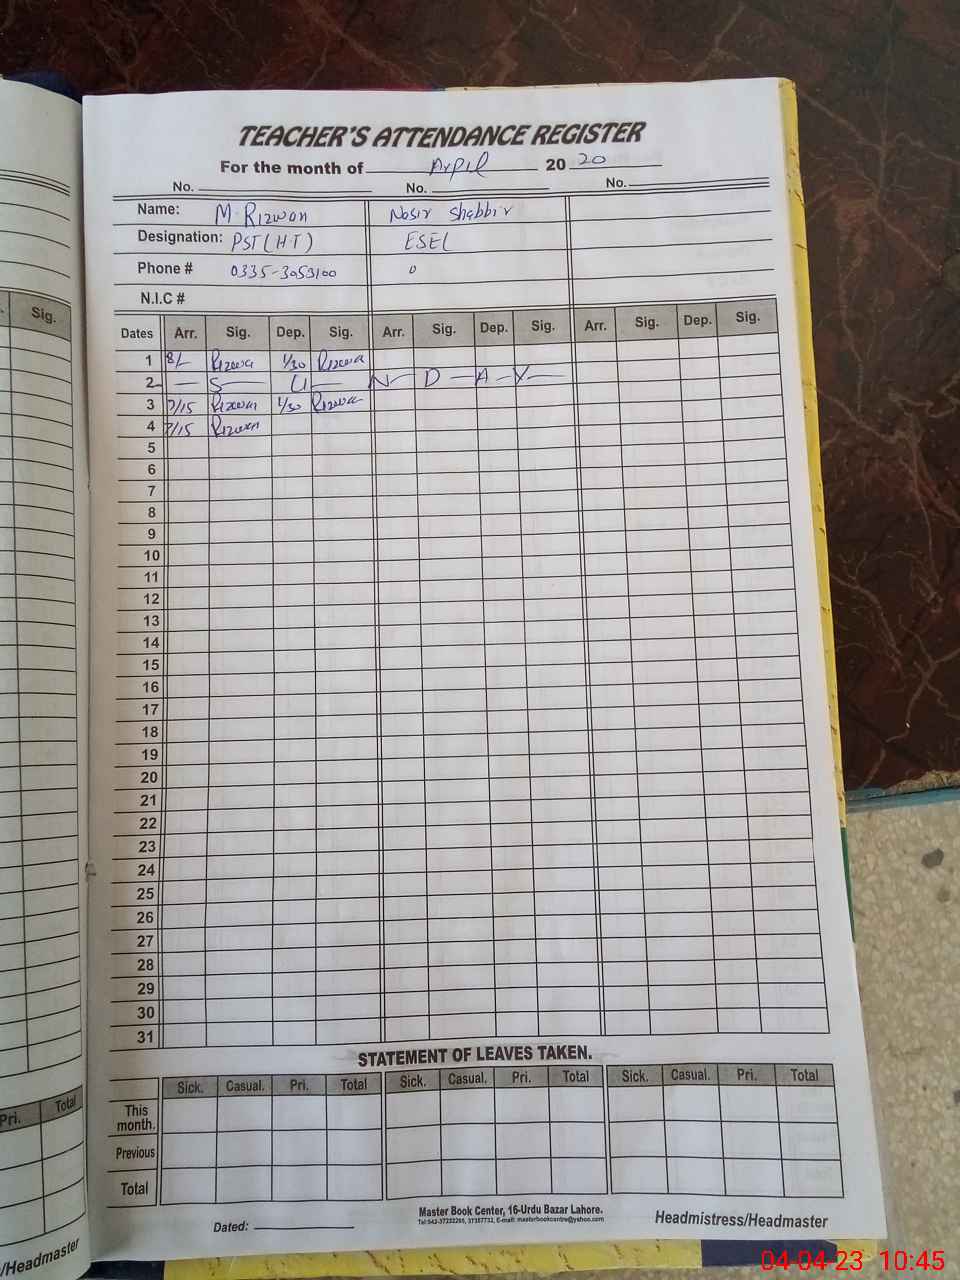 TEACHER'S ATTENDANCE REGISTER
For the month of Arpil 20 20
No. No. No.
Name: M. Rizwan Nasir Shabbir
Designation: PST (H.T) ESE(
Phone # 0335-3053100 0
N.I.C #
Dates Arr. Sig. Dep. Sig. Arr. Sig. Dep. Sig. Arr. Sig. Dep. Sig.
1 8/- Rizwan 1/30 Rizwan
2 S U N D A Y
3 7/15 Rizwan 1/30 Rizwan
4 7/15 Rizwan
5
6
7
8
9
10
11
12
13
14
15
16
17
18
19
20
21
22
23
24
25
26
27
28
29
30
31
STATEMENT OF LEAVES TAKEN.
Sick. Casual. Pri. Total Sick. Casual. Pri. Total Sick. Casual. Pri. Total
This month.
Previous
Total
Master Book Center, 16-Urdu Bazar Lahore.
E-mail: masterbookcentre@yahoo.com
Dated: Headmistress/Headmaster
Sig.
Pri. Total
/Headmaster
04-04-23 10:45